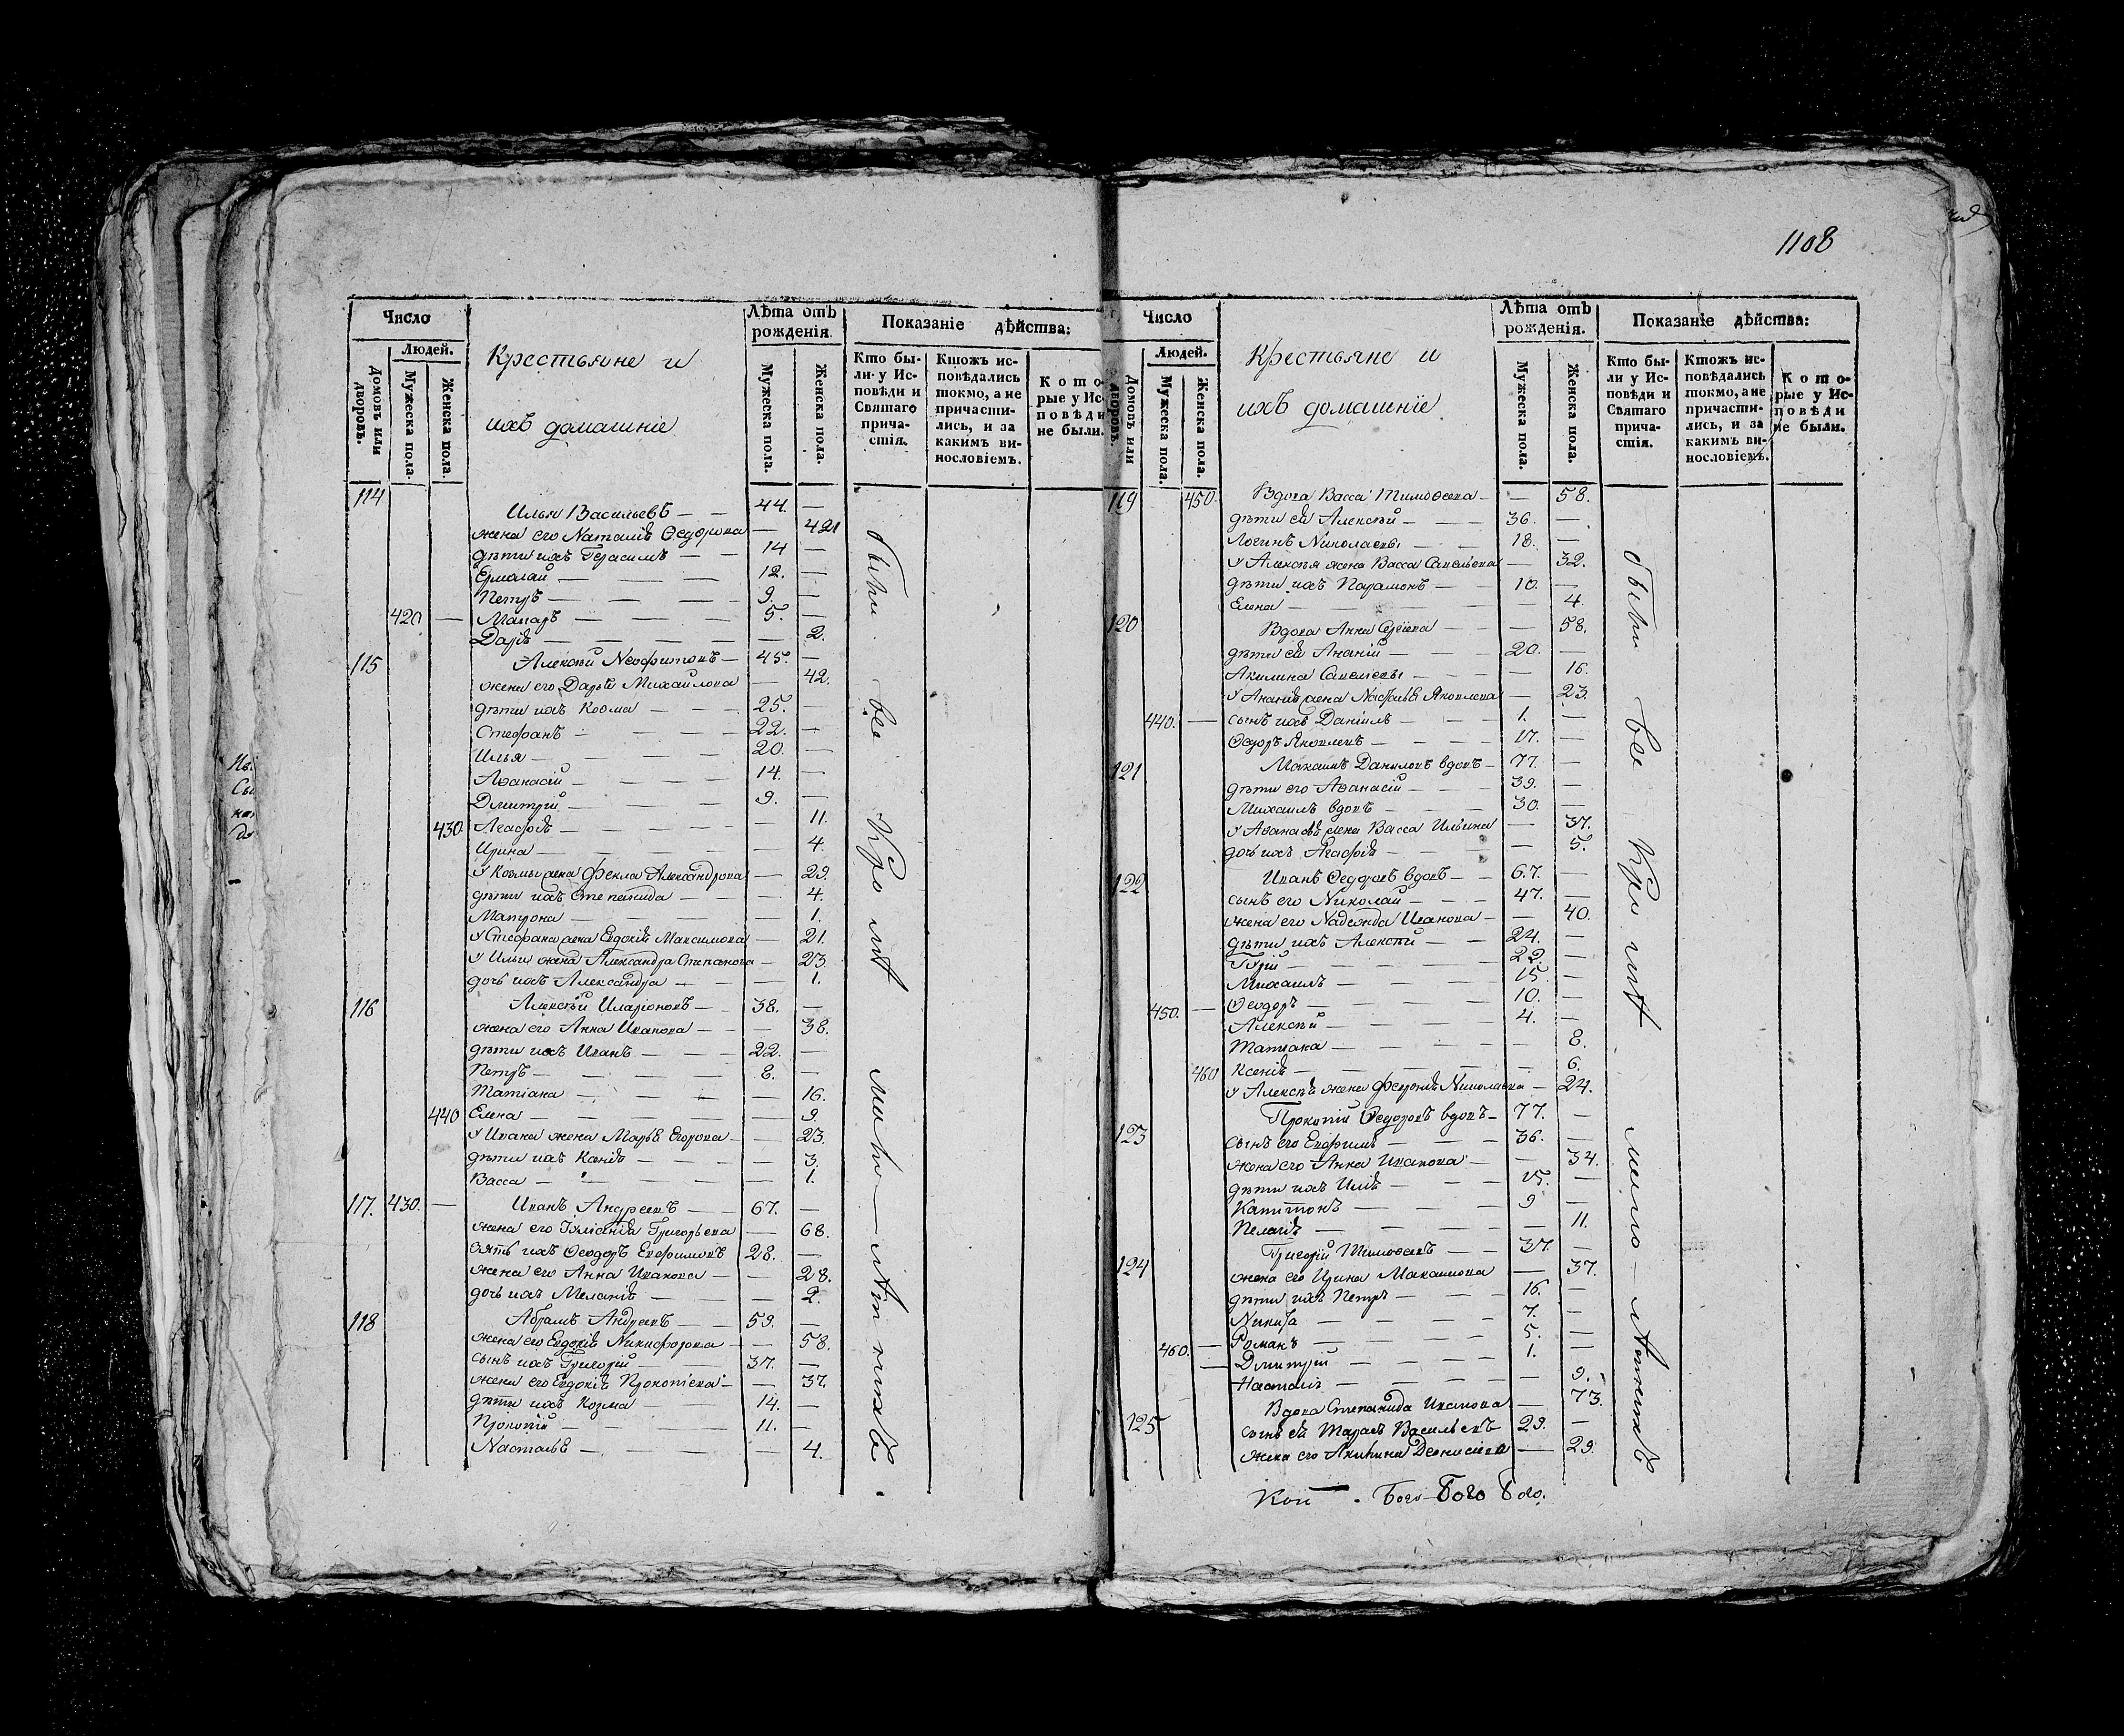 1108
Число
Людей.
Домовъ или дворовъ.
Мужеска пола.
Женска пола.
Крестьяне и
ихъ домашніе
Лѣта отъ рожденія.
Мужеска пола.
Женска пола.
Показаніе дѣйства:
Кто бы-
ли у Ис-
повѣди и
Святаго
прича-
стія.
Ктожъ ис-
повѣдались
токмо, а не
причасти-
лись, и за
какимъ ви-
нословіемъ.
К о т о-
рые у Ис-
п о в ѣ д и
не были.
114 Илья Васильевъ — — 44. —
жена его Наталія Ѳедорова —
дѣти ихъ Герасимъ — — 14 —
Ермолай — — — 12. —
Петръ — — — 9. —
420 — Макаръ — — — 5. —
Дарія — — — — 2.
115 Алексѣй Неофитовъ — 45. —
жена его Дарья Михайлова — 42.
дѣти ихъ Козма — — — 25. —
Стефанъ — — — 22. —
Илья — — — 20. —
Аѳанасій — — — 14. —
Дмитрій — — — 9. —
430 Агафія — — — — 11.
Ирина — — — — 4.
У Козмы жена Фекла Александрова — 29
дѣти ихъ Степанида — — — 4.
Матрона — — — — 1.
У Стефана жена Евдокія Максимова — 21.
У Ильи жена Александра Степанова — 23
дочь ихъ Александра — — — 1.
116 Алексѣй Иларіоновъ — 38. —
жена его Анна Иванова — — — 38.
дѣти ихъ Иванъ — — — 22. —
Петръ — — — 8. —
Татіана — — — — 16.
440 Елена — — — — 9
У Ивана жена Марья Егорова — — 23.
дѣти ихъ Ксенія — — — — 3.
Васса — — — — 1.
117. 430. — Иванъ Андреевъ — — 67. —
жена его Григорьева — 68.
Зять ихъ Ѳеодоръ Евфимовъ 28. —
жена его Анна Иванова — — 28.
дочь ихъ Меланія — — — 2.
118 Абрамъ Андреевъ — — 59. —
жена его Евдокія Никифорова — — 58.
сынъ ихъ Григорій — — 37. —
жена его Евдокія Прокопіева — — 37.
дѣти ихъ Козма — — 14. —
Прокопій — — — 11. —
Наталья — — — — 4.
были все
Число
Людей.
Домовъ или дворовъ.
Мужеска пола.
Женска пола.
Крестьяне и
ихъ домашніе
Лѣта отъ рожденія.
Мужеска пола.
Женска пола.
Показаніе дѣйства:
Кто бы-
ли у Ис-
повѣди и
Святаго
прича-
стія.
Ктожъ ис-
повѣдались
токмо, а не
причасти-
лись, и за
какимъ ви-
нословіемъ.
К о т о-
рые у Ис-
п о в ѣ д и
не были.
119 450 Вдова Васса Тимоѳеева — — 58.
дѣти ей Алексѣй — — — 36. —
Логинъ Николаевы — — 18. —
У Алексѣя жена Васса Савельева — 32.
дѣти ихъ Парамонъ — 10. —
Елена — — — — 4.
120 Вдова Анна Сергіева — — 58.
дѣти ей Ананій — — — 20. —
Акилина Савеліевы — — — 16.
У Ананія жена Яковлева — 23.
440. — сынъ ихъ Даніилъ — — 1. —
Ѳедоръ Яковлевъ — — — 17. —
121 Максимъ Даниловъ вдовъ — 77. —
дѣти его Аѳанасій — — — 39. —
Михаилъ вдовъ — — — 30. —
У Аѳанасія жена Васса Ильина — 37.
дочь ихъ Агафія — — — — 5.
122 Иванъ Ѳедоровъ вдовъ — — 67. —
сынъ его Николай — — — 47. —
жена его Надежда Иванова — — 40.
дѣти ихъ Алексѣй — — 24. —
Гурій — — — — 22. —
Михаилъ — — — 15. —
450. — Ѳеодоръ — — — 10. —
Алексѣй — — — 4. —
Татіана — — — — 8.
460 Ксенія — — — — 6.
У Алексѣя жена Николаева — 24.
123 Прокопій Ѳедоровъ вдовъ — 77. —
сынъ его Евфимъ — — — 36. —
жена его Анна Иванова — — 34.
дѣти ихъ Илія — — — 15. —
Капитонъ — — — 9 —
Пелагія — — — — 11.
124 Григорій Тимоѳеевъ — — 37. —
жена его Ирина Максимова — 37.
дѣти ихъ Петръ — — — 16. —
Никита — — — 7. —
Романъ — — — 5. —
460. — Дмитрій — — — 1. —
Наталія — — — — 9.
125 Вдова Степанида — 73.
сынъ ей Тарасъ Васильевъ 29. —
жена его Акилина Денисіева — 29.
были все